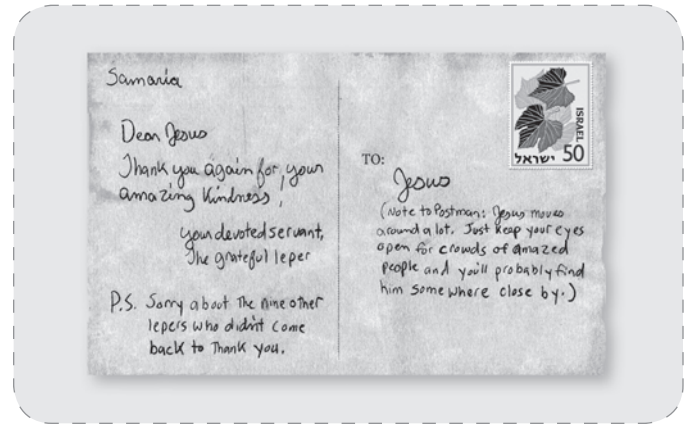 Samaria
Dear Jesus
Thank you again for your
amazing kindness,
your devoted servant,
The grateful leper
P.S. Sorry about the nine other
lepers who didn't come
back to Thank you.
ISRAEL
ישראל 50
TO:
Jesus
(Note to Postman: Jesus moves
around a lot. Just keep your eyes
open for crowds of amazed
people and you'll probably find
him somewhere close by.)